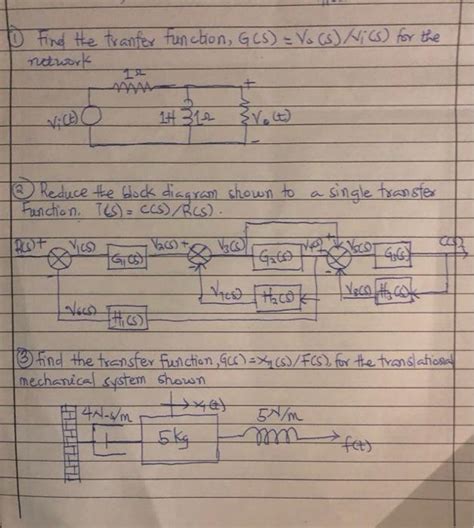 ① Find the tranfer function, G(s) = Vo(s)/Vi(s) for the
network
1Ω
+
Vi(t)
1H
1Ω
Vo(t)
-
② Reduce the block diagram shown to a single transfer
function. T(s) = C(s)/R(s).
R(s) + V1(s) G1(s) V2(s) + V3(s) G2(s) + V5(s) G3(s) C(s)
- - -
V7(s) H2(s) V8(s) H3(s)
V6(s) H1(s)
③ find the transfer function, G(s) = X1(s)/F(s), for the translational
mechanical system shown
x1(t)
4N-s/m
5N/m
5kg
f(t)